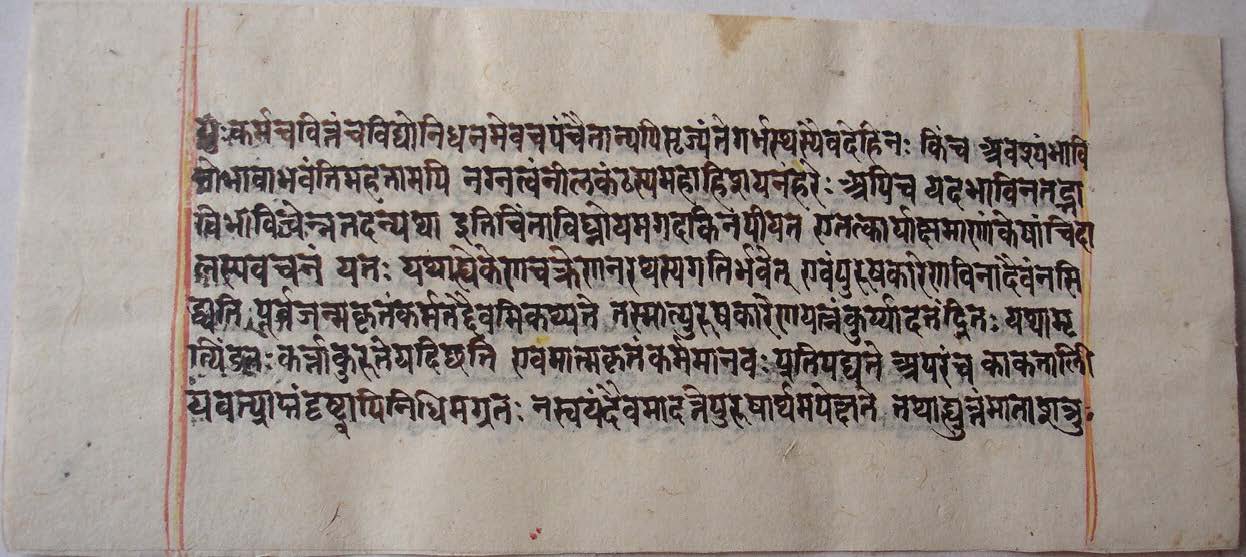 युः कर्म च वित्तं च विद्या निधनमेव च पंचैतान्यपि सृज्यंते गर्भस्थस्यैव देहिनः किंच अवश्यंभावि
नो भावा भवंति महतामपि नग्नत्वं नीलकंठस्य महाहिशयनं हरेः अपि च यदभावि न तद्भा
वि भावि चेन्न तदन्यथा इति चिंताविषघ्नोयमगदः किं न पीयते एतत्कार्याक्षमाणां केषांचिदा
लस्यवचनं यतः यथाह्येकेण चक्रेण न रथस्य गतिर्भवेत् एवं पुरुषकारेण विना दैवं न सि
द्ध्यति पूर्वजन्मकृतं कर्म तद्दैवमिति कथ्यते तस्मात्पुरुषकारेण यत्नं कुर्य्यादतंद्रितः यथा मृ
त्पिंडतः कर्त्ता कुरुते यदिछति एवमात्मकृतं कर्म मानवः प्रतिपद्यते अपरं च काकताली
यवत्प्राप्तं दृष्ट्वापि निधिमग्रतः न स्वयं दैवमादत्ते पुरुषार्थमपेक्षते तथाह्युक्तं माता शत्रु